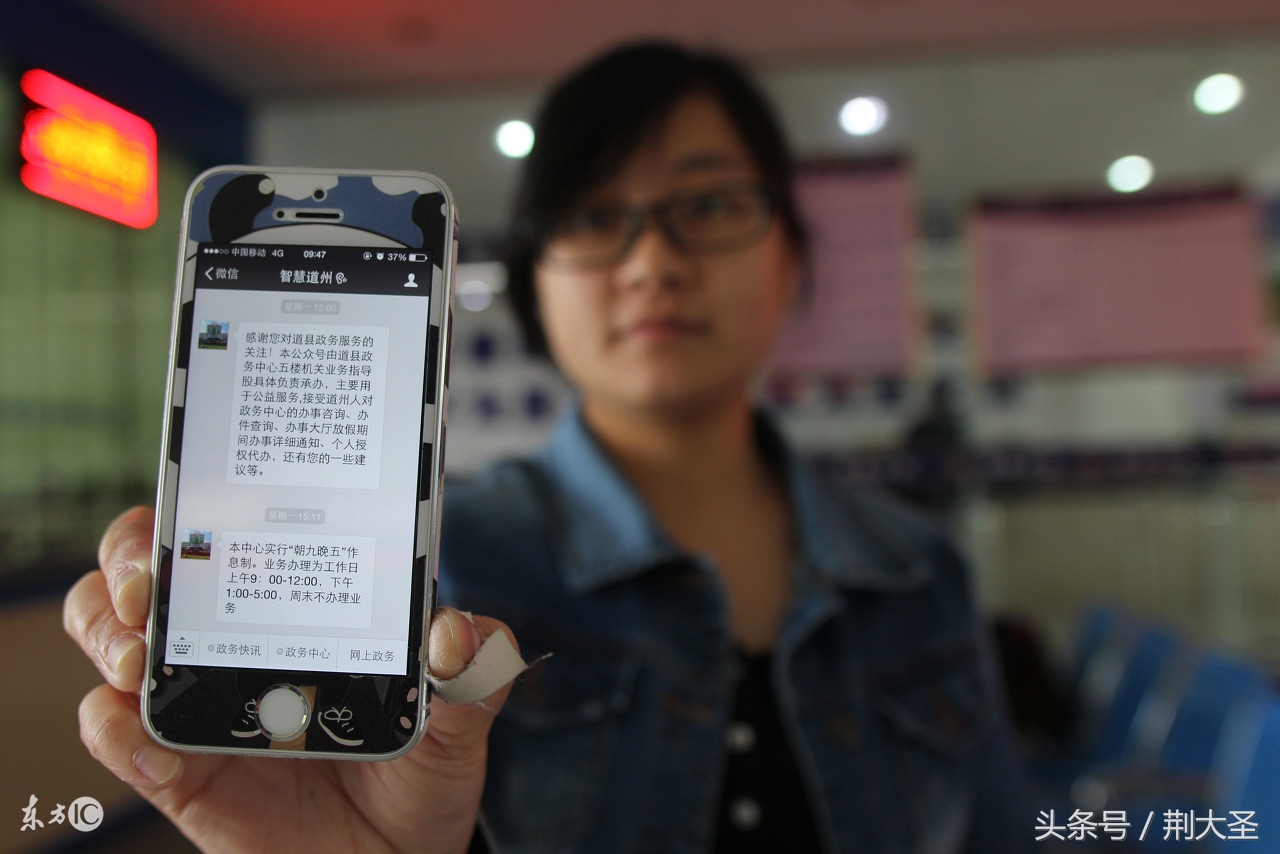 中国移动 4G 09:47 37%
微信 智慧道州
星期一 15:00
感谢您对道县政务服务的
关注！本公众号由道县政
务中心五楼机关业务指导
股具体负责承办，主要用
于公益服务,接受道州人对
政务中心的办事咨询、办
件查询、办事大厅放假期
间办事详细通知、个人授
权代办，还有您的一些建
议等。
星期一 15:11
本中心实行“朝九晚五”作
息制。业务办理为工作日
上午9：00-12:00，下午
1:00-5:00，周末不办理业
务
政务快讯 政务中心 网上政务
东方IC
头条号 / 荆大圣